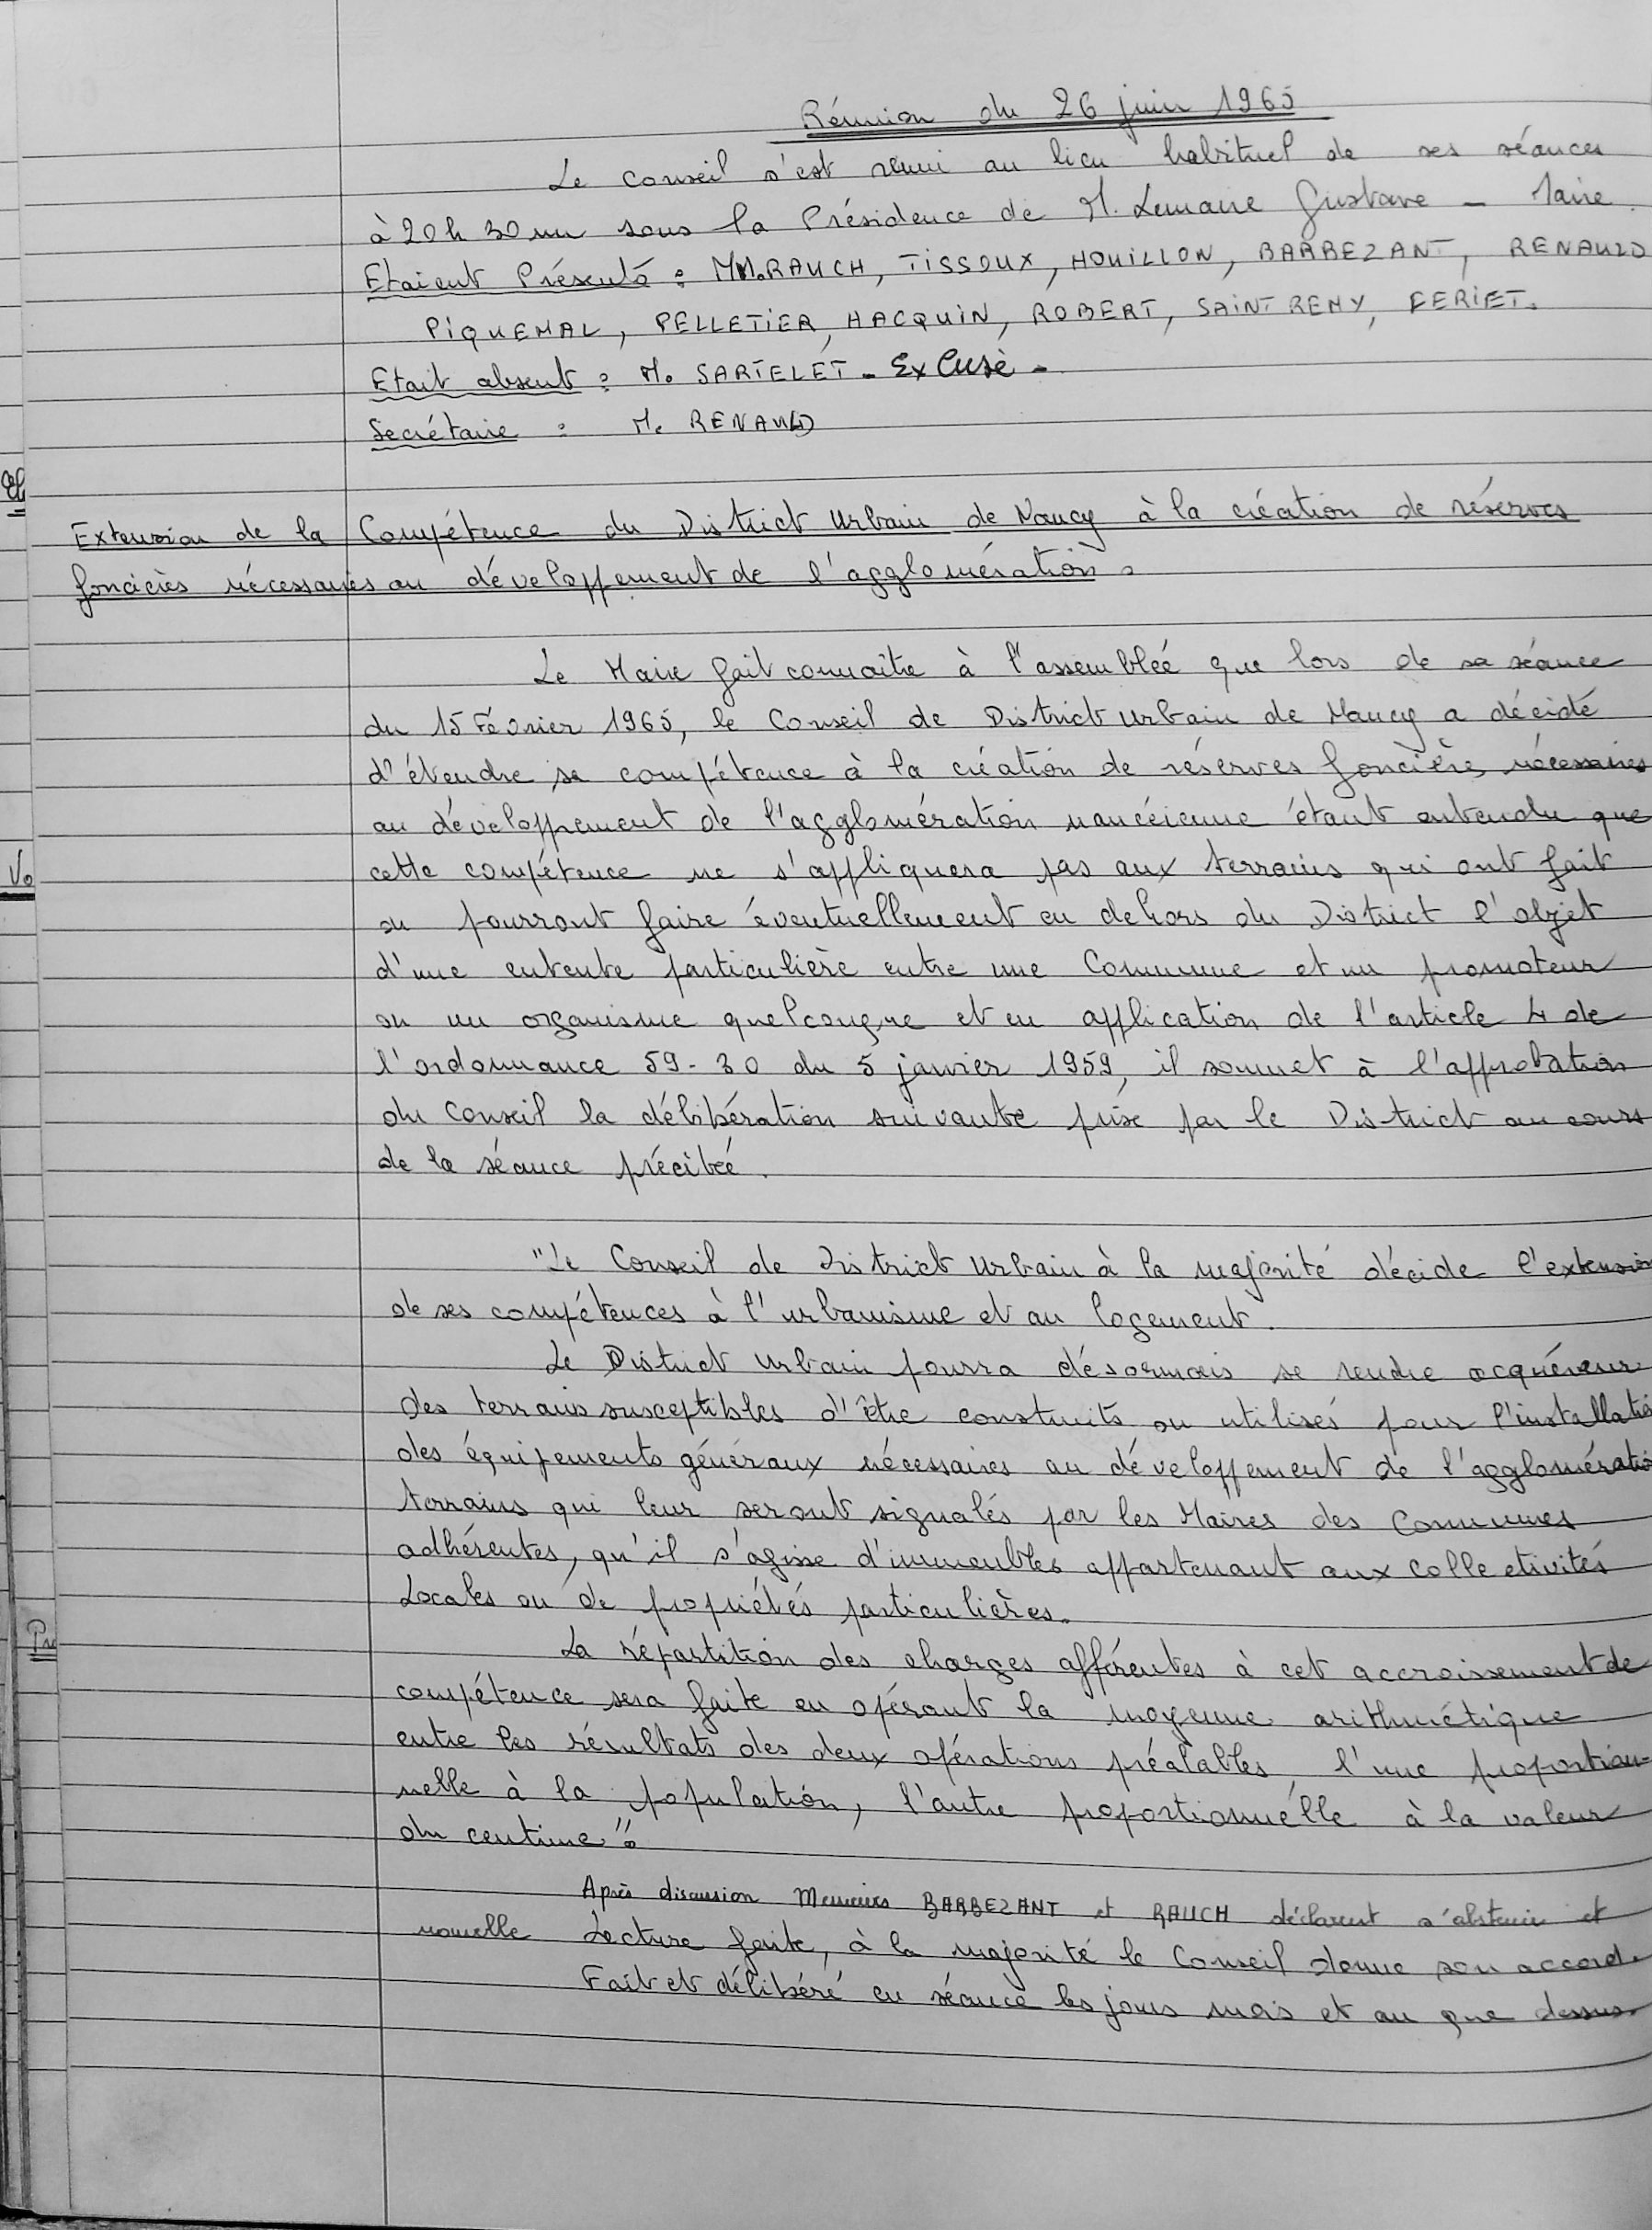 Réunion du 26 juin 1965
Le Conseil s'est réuni au lieu habituel de ses séances
à 20h 30mn sous la Présidence de M. Lemaire Gustave - Maire.
Etaient Présents : MM. RAUCH, TISSOUX, HOUILLON, BARBEZANT, RENAULD
PIQUEMAL, PELLETIER, HACQUIN, ROBERT, SAINT REMY, FERIET.
Etait absent : M. SARTELET - Excusé -
Secrétaire : M. RENAULD
Extension de la Compétence du District Urbain de Nancy à la création de réserves
foncières nécessaires au développement de l'agglomération.
Le Maire fait connaître à l'assemblée que lors de sa séance
du 15 Février 1965, le Conseil de District Urbain de Nancy a décidé
d'étendre sa compétence à la création de réserves foncières nécessaires
au développement de l'agglomération nancéienne étant entendu que
cette compétence ne s'appliquera pas aux terrains qui ont fait
Vo
ou pourront faire éventuellement en dehors du District l'objet
d'une entente particulière entre une Commune et un promoteur
ou un organisme quelconque et en application de l'article 4 de
l'ordonnance 59-30 du 5 janvier 1959, il soumet à l'approbation
du Conseil la délibération suivante prise par le District au cours
de la séance précitée.
"Le Conseil de District Urbain à la majorité décide l'extension
de ses compétences à l'urbanisme et au logement.
Le District Urbain pourra désormais se rendre acquéreur
des terrains susceptibles d'être construits ou utilisés pour l'installation
des équipements généraux nécessaires au développement de l'agglomération
terrains qui leur seront signalés par les Maires des Communes
adhérentes, qu'il s'agisse d'immeubles appartenant aux collectivités
Locales ou de propriétés particulières.
La répartition des charges afférentes à cet accroissement de
compétence sera faite en opérant la moyenne arithmétique
entre les résultats des deux opérations préalables, l'une proportion-
nelle à la population, l'autre proportionnelle à la valeur
du centime".
Après discussion Messieurs BARBEZANT et RAUCH déclarent s'abstenir et
nouvelle Lecture faite, à la majorité le Conseil donne son accord.
Fait et délibéré en séance les jours mois et an que dessus.